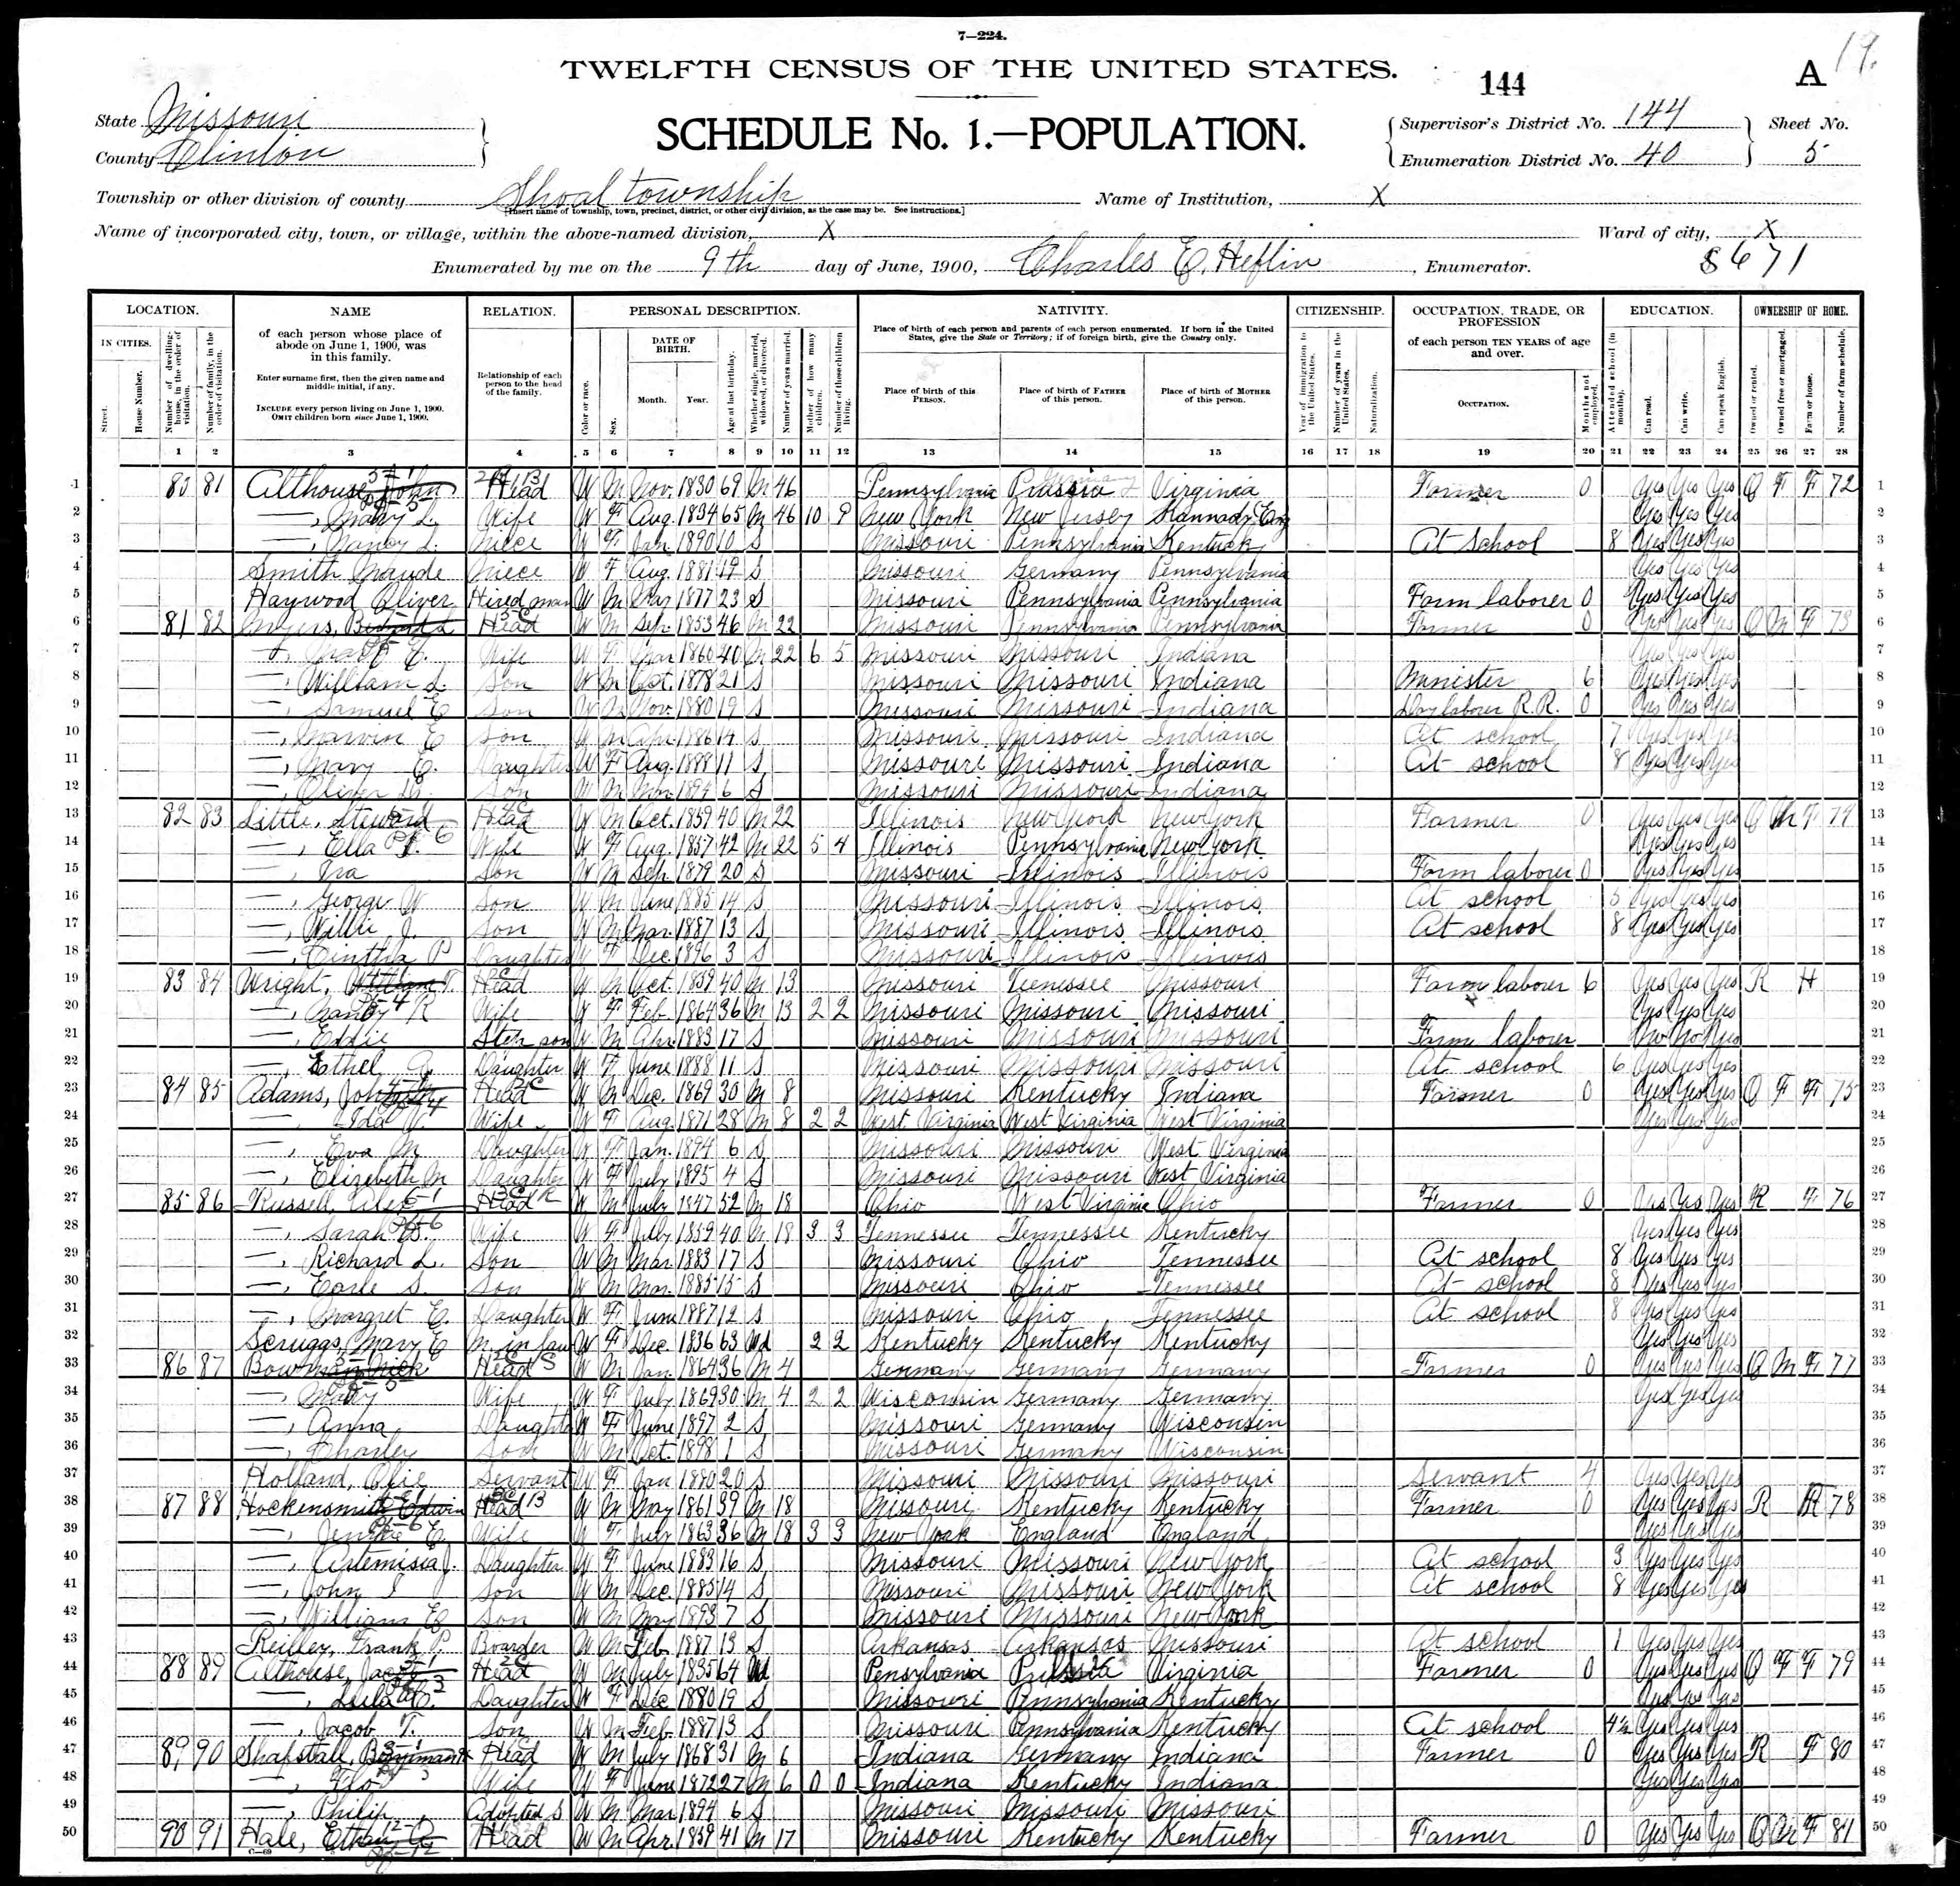 7—224.
TWELFTH CENSUS OF THE UNITED STATES.
144
A
State Missouri
County Clinton
SCHEDULE No. 1.—POPULATION.
Supervisor's District No. 144
Enumeration District No. 40
Sheet No.
5
Township or other division of county Shoal township
[Insert name of township, town, precinct, district, or other civil division, as the case may be. See instructions.]
Name of Institution, X
Name of incorporated city, town, or village, within the above-named division, X
Ward of city, X
Enumerated by me on the 9th day of June, 1900, Charles E. Heflin, Enumerator.
8671
LOCATION. NAME RELATION. PERSONAL DESCRIPTION. NATIVITY. CITIZENSHIP. OCCUPATION, TRADE, OR PROFESSION EDUCATION. OWNERSHIP OF HOME.
IN CITIES.
Street.
House Number.
Number of dwelling-house, in the order of visitation.
Number of family, in the order of visitation.
of each person whose place of abode on June 1, 1900, was in this family.
Enter surname first, then the given name and middle initial, if any.
INCLUDE every person living on June 1, 1900.
OMIT children born since June 1, 1900.
Relationship of each person to the head of the family.
Color or race.
Sex.
DATE OF BIRTH.
Month. Year.
Age at last birthday.
Whether single, married, widowed, or divorced.
Number of years married.
Mother of how many children.
Number of these children living.
Place of birth of each person and parents of each person enumerated. If born in the United States, give the State or Territory; if of foreign birth, give the Country only.
Place of birth of this PERSON.
Place of birth of FATHER of this person.
Place of birth of MOTHER of this person.
Year of immigration to the United States.
Number of years in the United States.
Naturalization.
of each person TEN YEARS of age and over.
OCCUPATION.
Months not employed.
Attended school (in months).
Can read.
Can write.
Can speak English.
Owned or rented.
Owned free or mortgaged.
Farm or house.
Number of farm schedule.
1 2 3 4 5 6 7 8 9 10 11 12 13 14 15 16 17 18 19 20 21 22 23 24 25 26 27 28
1 80 81 Althouse, John Head W M Nov. 1830 69 M 46 Pennsylvania Prussia Virginia Farmer 0 Yes Yes Yes O F F 72 1
2 —, Mary L. Wife W F Aug. 1834 65 M 46 10 9 New York New Jersey Yes Yes Yes 2
3 —, Nancy L. Niece W F Jan. 1890 10 S Missouri Pennsylvania Kentucky At School 8 Yes Yes Yes 3
4 Smith Maude Niece W F Aug. 1881 19 S Missouri Germany Pennsylvania Yes Yes Yes 4
5 Haywood Oliver Hired man W M Mar 1877 23 S Missouri Pennsylvania Pennsylvania Farm laborer 0 Yes Yes Yes 5
6 81 82 Myers, Head W M Sep. 1853 46 M 22 Missouri Pennsylvania Pennsylvania Farmer 0 Yes Yes Yes O M F 73 6
7 —, E. Wife W F Mar 1860 40 M 22 6 5 Missouri Missouri Indiana Yes Yes Yes 7
8 —, William L. Son W M Oct. 1878 21 S Missouri Missouri Indiana Minister 6 Yes Yes Yes 8
9 —, Samuel E Son W M Nov. 1880 19 S Missouri Missouri Indiana Day laborer R.R. 0 Yes Yes Yes 9
10 —, Marvin E Son W M Apr. 1886 14 S Missouri Missouri Indiana At school 7 Yes Yes Yes 10
11 —, Mary E. Daughter W F Aug. 1888 11 S Missouri Missouri Indiana At school 8 Yes Yes Yes 11
12 —, Oliver Son W M 1894 6 S Missouri Missouri Indiana 12
13 82 83 Little, Steward Head W M Oct. 1859 40 M 22 Illinois New York New York Farmer 0 Yes Yes Yes O M F 74 13
14 —, Ella J. Wife W F Aug. 1857 42 M 22 5 4 Illinois Pennsylvania New York Yes Yes Yes 14
15 —, Ira Son W M Sep. 1879 20 S Missouri Illinois Illinois Farm laborer 0 Yes Yes Yes 15
16 —, George W Son W M June 1885 14 S Missouri Illinois Illinois At school 5 Yes Yes Yes 16
17 —, Willie J. Son W M Mar. 1887 13 S Missouri Illinois Illinois At school 8 Yes Yes Yes 17
18 —, Cintha P Daughter W F Dec. 1896 3 S Missouri Illinois Illinois 18
19 83 84 Wright, William T. Head W M Oct. 1859 40 M 13 Missouri Tennessee Missouri Farm laborer 6 Yes Yes Yes R H 19
20 —, Nancy R Wife W F Feb. 1864 36 M 13 2 2 Missouri Missouri Missouri Yes Yes Yes 20
21 —, Eddie Step son W M Apr. 1883 17 S Missouri Missouri Missouri Farm laborer No No Yes 21
22 —, Ethel A. Daughter W F June 1888 11 S Missouri Missouri Missouri At school 6 Yes Yes Yes 22
23 84 85 Adams, John Head W M Dec. 1869 30 M 8 Missouri Kentucky Indiana Farmer 0 Yes Yes Yes O F F 75 23
24 —, Ida Wife W F Aug. 1871 28 M 8 2 2 West Virginia West Virginia West Virginia Yes Yes Yes 24
25 —, Eva M Daughter W F Jan. 1894 6 S Missouri Missouri West Virginia 25
26 —, Elizabeth M Daughter W F July 1895 4 S Missouri Missouri West Virginia 26
27 85 86 Russell, Alex Head W M July 1847 52 M 18 Ohio West Virginia Ohio Farmer 0 Yes Yes Yes R F 76 27
28 —, Sarah Wife W F July 1859 40 M 18 3 3 Tennessee Tennessee Kentucky Yes Yes Yes 28
29 —, Richard L. Son W M Mar 1883 17 S Missouri Ohio Tennessee At school 8 Yes Yes Yes 29
30 —, Earle S. Son W M Mar. 1885 15 S Missouri Ohio Tennessee At school 8 Yes Yes Yes 30
31 —, Margret E. Daughter W F June 1887 12 S Missouri Ohio Tennessee At school 8 Yes Yes Yes 31
32 Scruggs, Mary E M in law W F Dec. 1836 63 Wd 2 2 Kentucky Kentucky Kentucky Yes Yes Yes 32
33 86 87 Bowman Nick Head W M Jan. 1864 36 M 4 Germany Germany Germany Farmer 0 Yes Yes Yes O M F 77 33
34 —, Mary Wife W F July 1869 30 M 4 2 2 Wisconsin Germany Germany Yes Yes Yes 34
35 —, Anna Daughter W F June 1897 2 S Missouri Germany Wisconsin 35
36 —, Charley Son W M Oct. 1898 1 S Missouri Germany Wisconsin 36
37 Holland, Olie Servant W F Jan 1880 20 S Missouri Missouri Missouri Servant 4 Yes Yes Yes 37
38 87 88 Hockensmith Edwin Head W M May 1861 39 M 18 Missouri Kentucky Kentucky Farmer 0 Yes Yes Yes R F 78 38
39 —, Jennie E. Wife W F July 1863 36 M 18 3 3 New York England England Yes Yes Yes 39
40 —, Artemisia J. Daughter W F June 1883 16 S Missouri Missouri New York At school 3 Yes Yes Yes 40
41 —, John I Son W M Dec. 1885 14 S Missouri Missouri New York At school 8 Yes Yes Yes 41
42 —, William E Son W M May 1893 7 S Missouri Missouri New York 42
43 Reilley, Frank P. Boarder W M Feb. 1887 13 S Arkansas Arkansas Missouri At school 1 Yes Yes Yes 43
44 88 89 Althouse, Jacob Head W M July 1835 64 Wd Pensylvania Prussia Virginia Farmer 0 Yes Yes Yes O F F 79 44
45 —, Lula Daughter W F Dec 1880 19 S Missouri Pennsylvania Kentucky Yes Yes Yes 45
46 —, Jacob T. Son W M Feb. 1887 13 S Missouri Pennsylvania Kentucky At school 4½ Yes Yes Yes 46
47 89 90 Shafstall, Head W M July 1868 31 M 6 Indiana Germany Indiana Farmer 0 Yes Yes Yes R F 80 47
48 —, Flo Wife W F June 1872 27 M 6 0 0 Indiana Kentucky Indiana Yes Yes Yes 48
49 —, Philip Adopted S W M Mar 1894 6 S Missouri Missouri Missouri 49
50 90 91 Hale, Ethan Head W M Apr. 1859 41 M 17 Missouri Kentucky Kentucky Farmer 0 Yes Yes Yes O M F 81 50